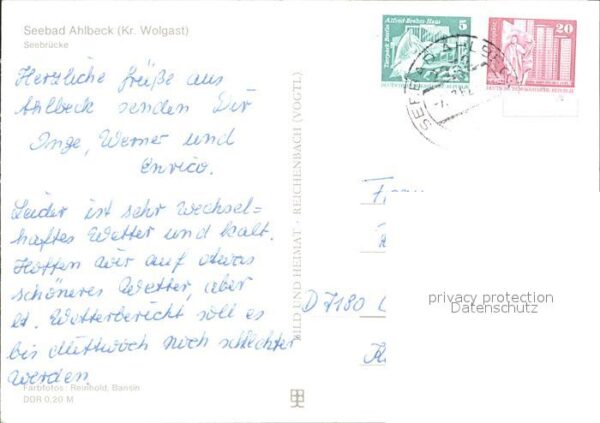 Seebad Ahlbeck (Kr. Wolgast)
Seebrücke
Herzliche Grüße aus
Ahlbeck senden Dir
Inge, Werner und
Enrico.
Leider ist sehr Wechsel=
haftes Wetter und kalt.
Hoffen wir auf etwas
schöneres Wetter, aber
lt. Wetterbericht soll es
bis Mittwoch noch schlechter
werden.
Farbfotos: Reinhold, Bansin
DDR 0,20 M
BILD UND HEIMAT · REICHENBACH (VOGTL)
Tierpark Berlin
Alfred-Brehm-Haus
5
20
DEUTSCHE DEMOKRATISCHE REPUBLIK
SEEBAD AHLBECK
D 7180
privacy protection
Datenschutz